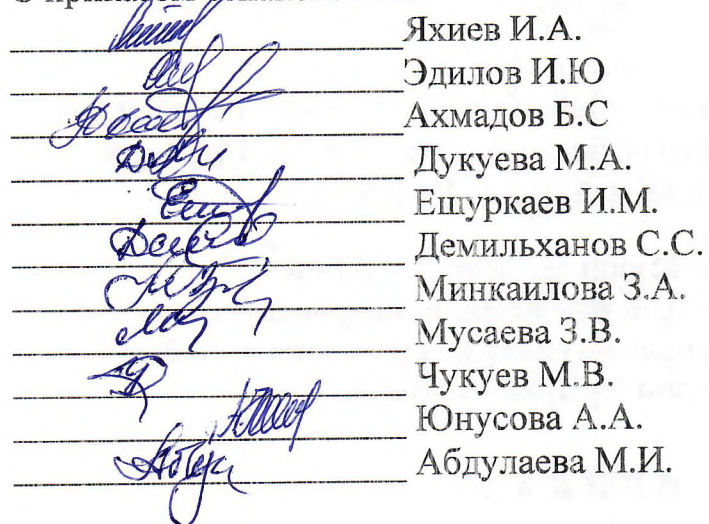 Яхиев И.А.
Эдилов И.Ю
Ахмадов Б.С
Дукуева М.А.
Ешуркаев И.М.
Демильханов С.С.
Минкаилова З.А.
Мусаева З.В.
Чукуев М.В.
Юнусова А.А.
Абдулаева М.И.